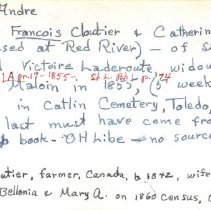 Andre
Francois Cloutier & Catherin
sed at Red River) - of S
d Victoire Laderoute widow
LA pr.17-1855.
Maloin in 1855, (5 week
in Catlin Cemetery, Toledo,
last must have come fro
p book. OH Libe - no sourc
utier, farmer, Canada, b 1842, wife
Bellonia & Mary A. on 1860 census, L